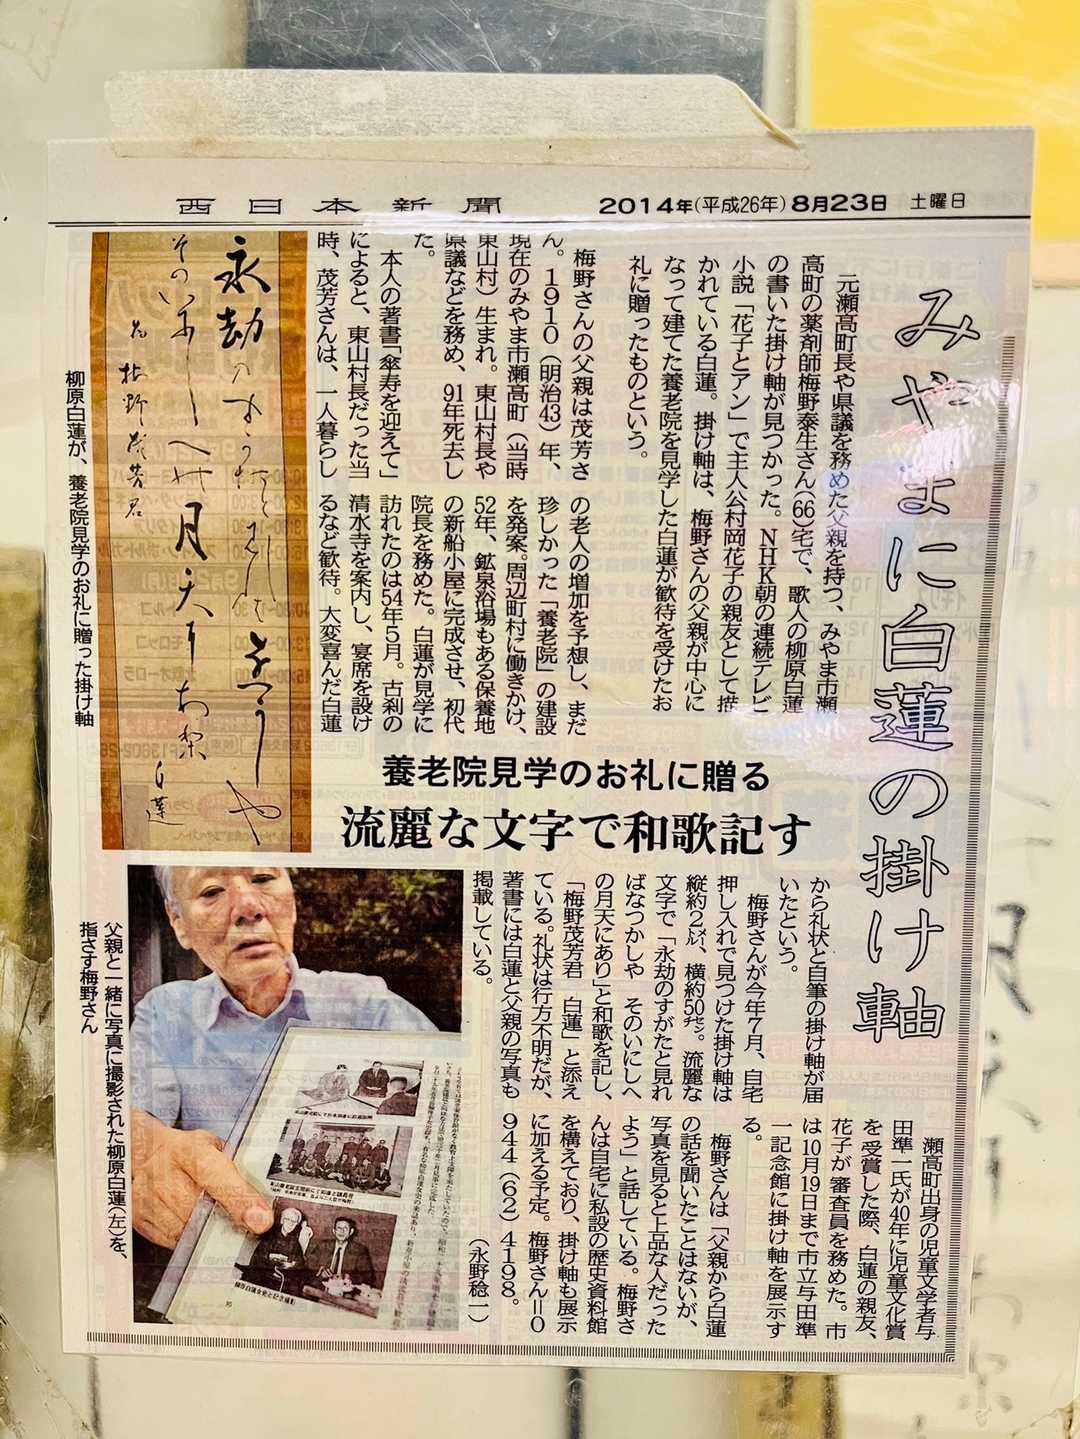 西日本新聞
2014年(平成26年)8月23日 土曜日
みやまに白蓮の掛け軸
養老院見学のお礼に贈る
流麗な文字で和歌記す
元瀬高町長や県議を務めた父親を持つ、みやま市瀬
高町の薬剤師梅野泰生さん(66)宅で、歌人の柳原白蓮
の書いた掛け軸が見つかった。NHK朝の連続テレビ
小説「花子とアン」で主人公村岡花子の親友として描
かれている白蓮。掛け軸は、梅野さんの父親が中心に
なって建てた養老院を見学した白蓮が歓待を受けたお
礼に贈ったものという。
梅野さんの父親は茂芳さ
ん。1910(明治43)年、
現在のみやま市瀬高町(当時
東山村)生まれ。東山村長や
県議などを務め、91年死去し
た。
本人の著書「傘寿を迎えて」
によると、東山村長だった当
時、茂芳さんは、一人暮らし
の老人の増加を予想し、まだ
珍しかった「養老院」の建設
を発案。周辺町村に働きかけ、
52年、鉱泉浴場もある保養地
の新船小屋に完成させ、初代
院長を務めた。白蓮が見学に
訪れたのは54年5月。古刹の
清水寺を案内し、宴席を設け
るなど歓待。大変喜んだ白蓮
から礼状と自筆の掛け軸が届
いたという。
梅野さんが今年7月、自宅
押し入れで見つけた掛け軸は
縦約2㍍、横約50㌢。流麗な
文字で「永劫のすがたと見れ
ばなつかしや そのいにしへ
の月天にあり」と和歌を記し、
「梅野茂芳君 白蓮」と添え
ている。礼状は行方不明だが、
著書には白蓮と父親の写真も
掲載している。
瀬高町出身の児童文学者与
田準一氏が40年に児童文化賞
を受賞した際、白蓮の親友、
花子が審査員を務めた。市
は10月19日まで市立与田準
一記念館に掛け軸を展示す
る。
梅野さんは「父親から白蓮
の話を聞いたことはないが、
写真を見ると上品な人だった
よう」と話している。梅野さ
んは自宅に私設の歴史資料館
を構えており、掛け軸も展示
に加える予定。梅野さん=0
944(62)4198。
(永野稔一)
柳原白蓮が、養老院見学のお礼に贈った掛け軸
父親と一緒に写真に撮影された柳原白蓮(左)を、
指さす梅野さん